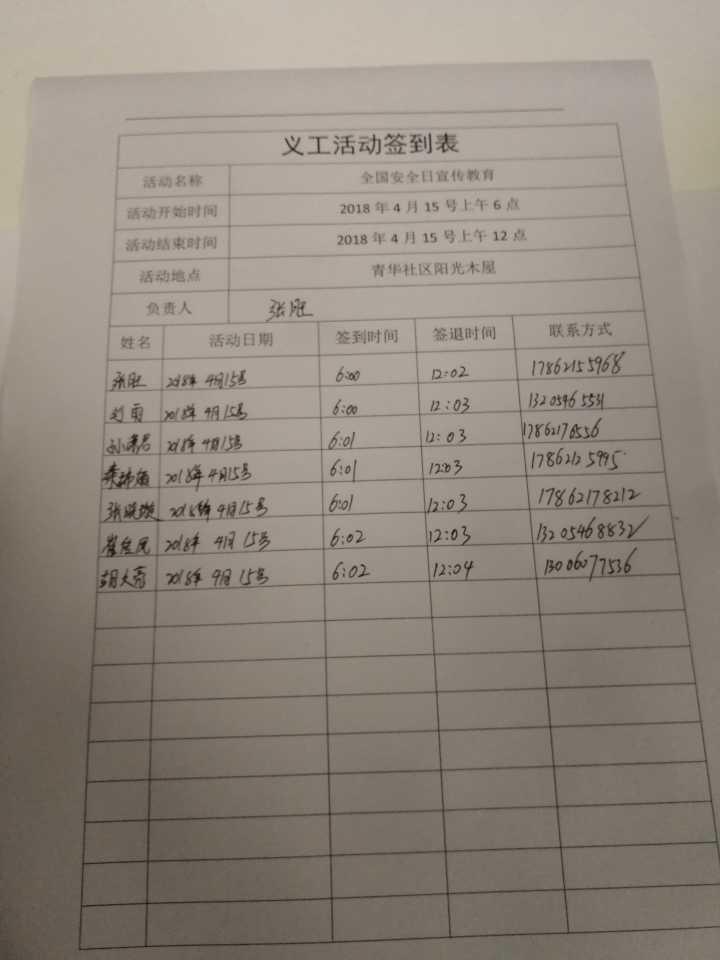 义工活动签到表
活动名称 全国安全日宣传教育
活动开始时间 2018 年 4 月 15 号上午 6 点
活动结束时间 2018 年 4 月 15 号上午 12 点
活动地点 青华社区阳光木屋
负责人 张胜
姓名 活动日期 签到时间 签退时间 联系方式
张胜 2018年 4月15号 6:00 12:02 17862155968
刘雨 2018年 4月15号 6:00 12:03
2018年 4月15号 6:01 12:03
2018年 4月15号 6:01 12:03 17862125995
2018年 4月15号 6:01 12:03 17862178212
2018年 4月15号 6:02 12:03 13205468832
胡大亮 2018年 4月15号 6:02 12:04 13006077536